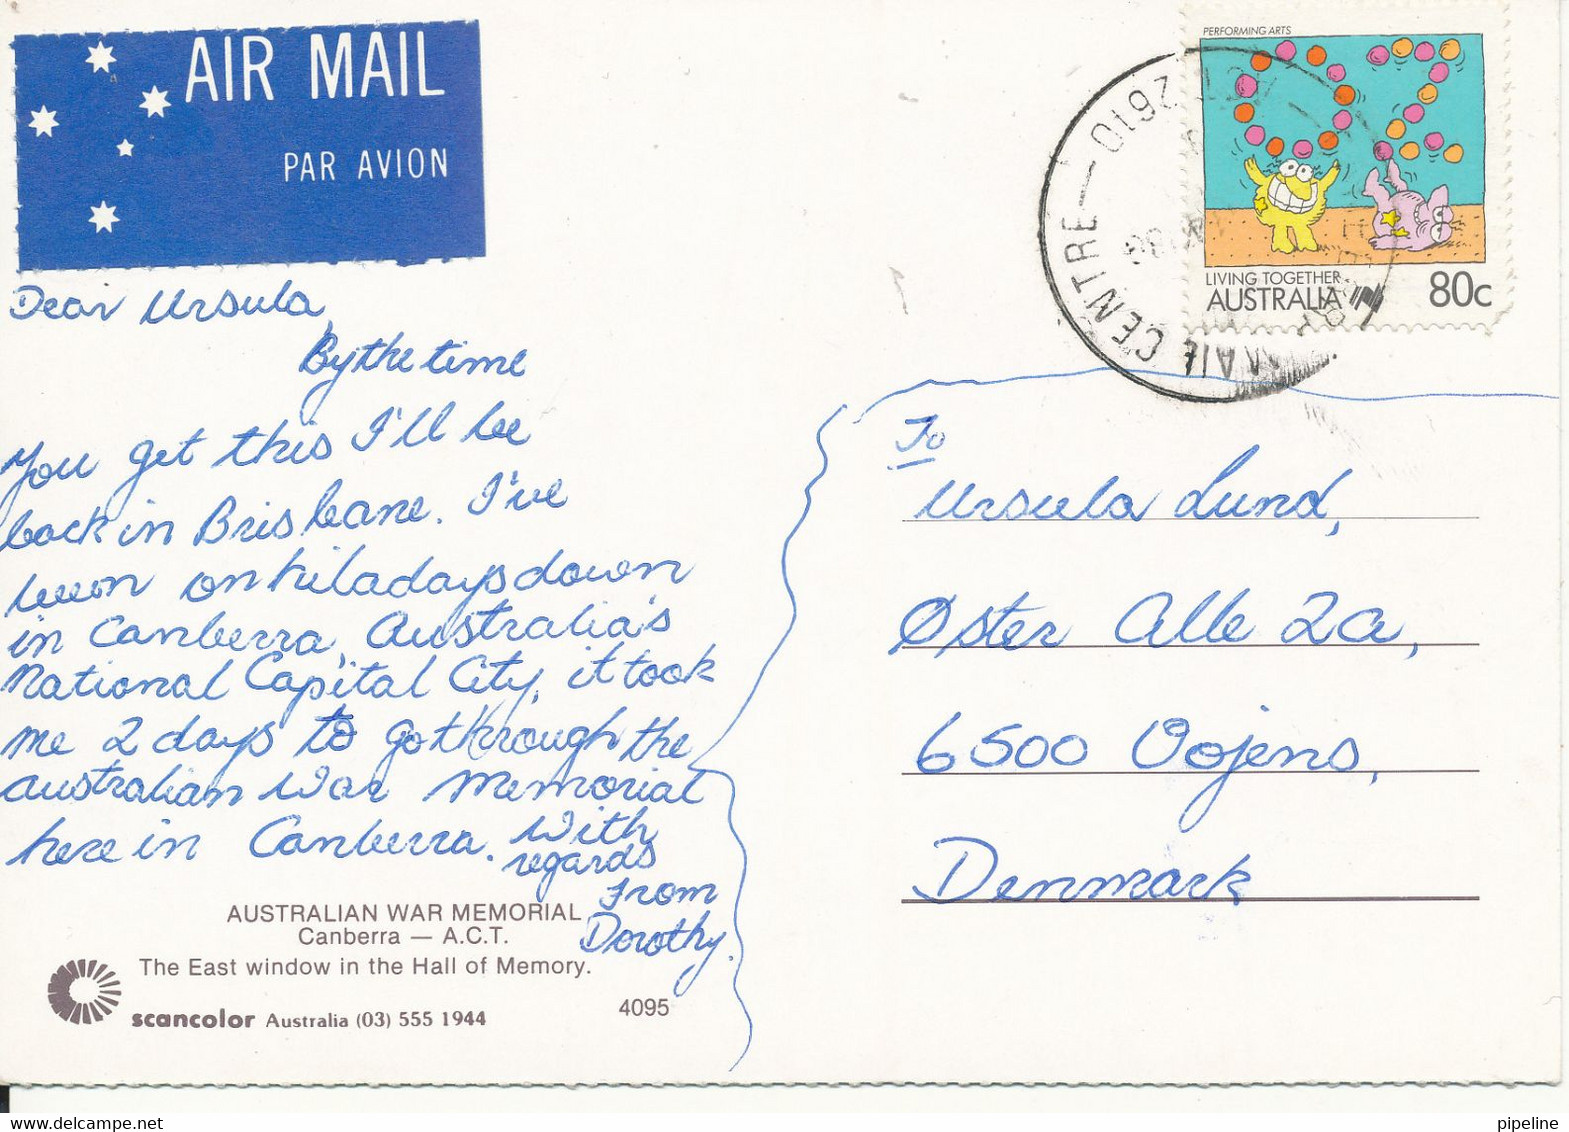 AIR MAIL
PAR AVION
PERFORMING ARTS
LIVING TOGETHER
AUSTRALIA
80c
MAIL CENTRE — 2610
Dear Ursula,
By the time
You get this I'll be
back in Brisbane. I've
been on hiladays down
in Canberra, Australia's
National Capital City, it took
me 2 days to go through the
Australian War Memorial
here in Canberra. With
regards
From
Dorothy.
To
Ursula Lund,
Øster Alle 2a,
6500 Vojens,
Denmark
AUSTRALIAN WAR MEMORIAL
Canberra — A.C.T.
The East window in the Hall of Memory.
scancolor Australia (03) 555 1944
4095
www.delcampe.net
pipeline